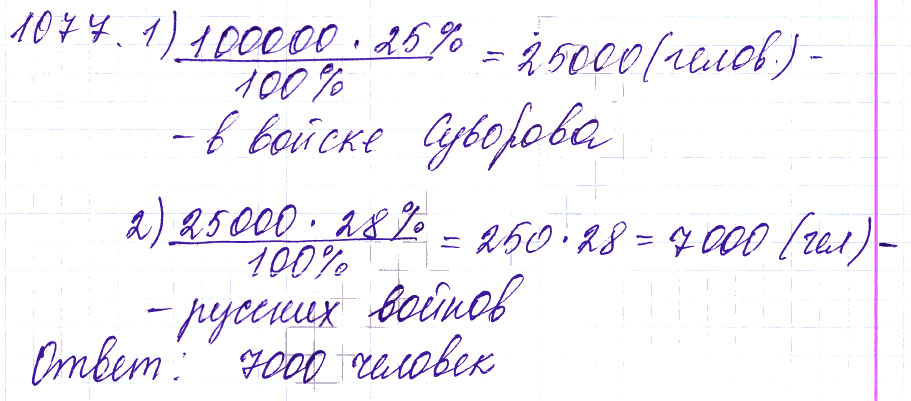 1077. 1) 100000 · 25% / 100% = 25000 (челов.) -
- в войске Суворова
2) 25000 · 28% / 100% = 250 · 28 = 7000 (чел) -
- русских войнов
Ответ: 7000 человек